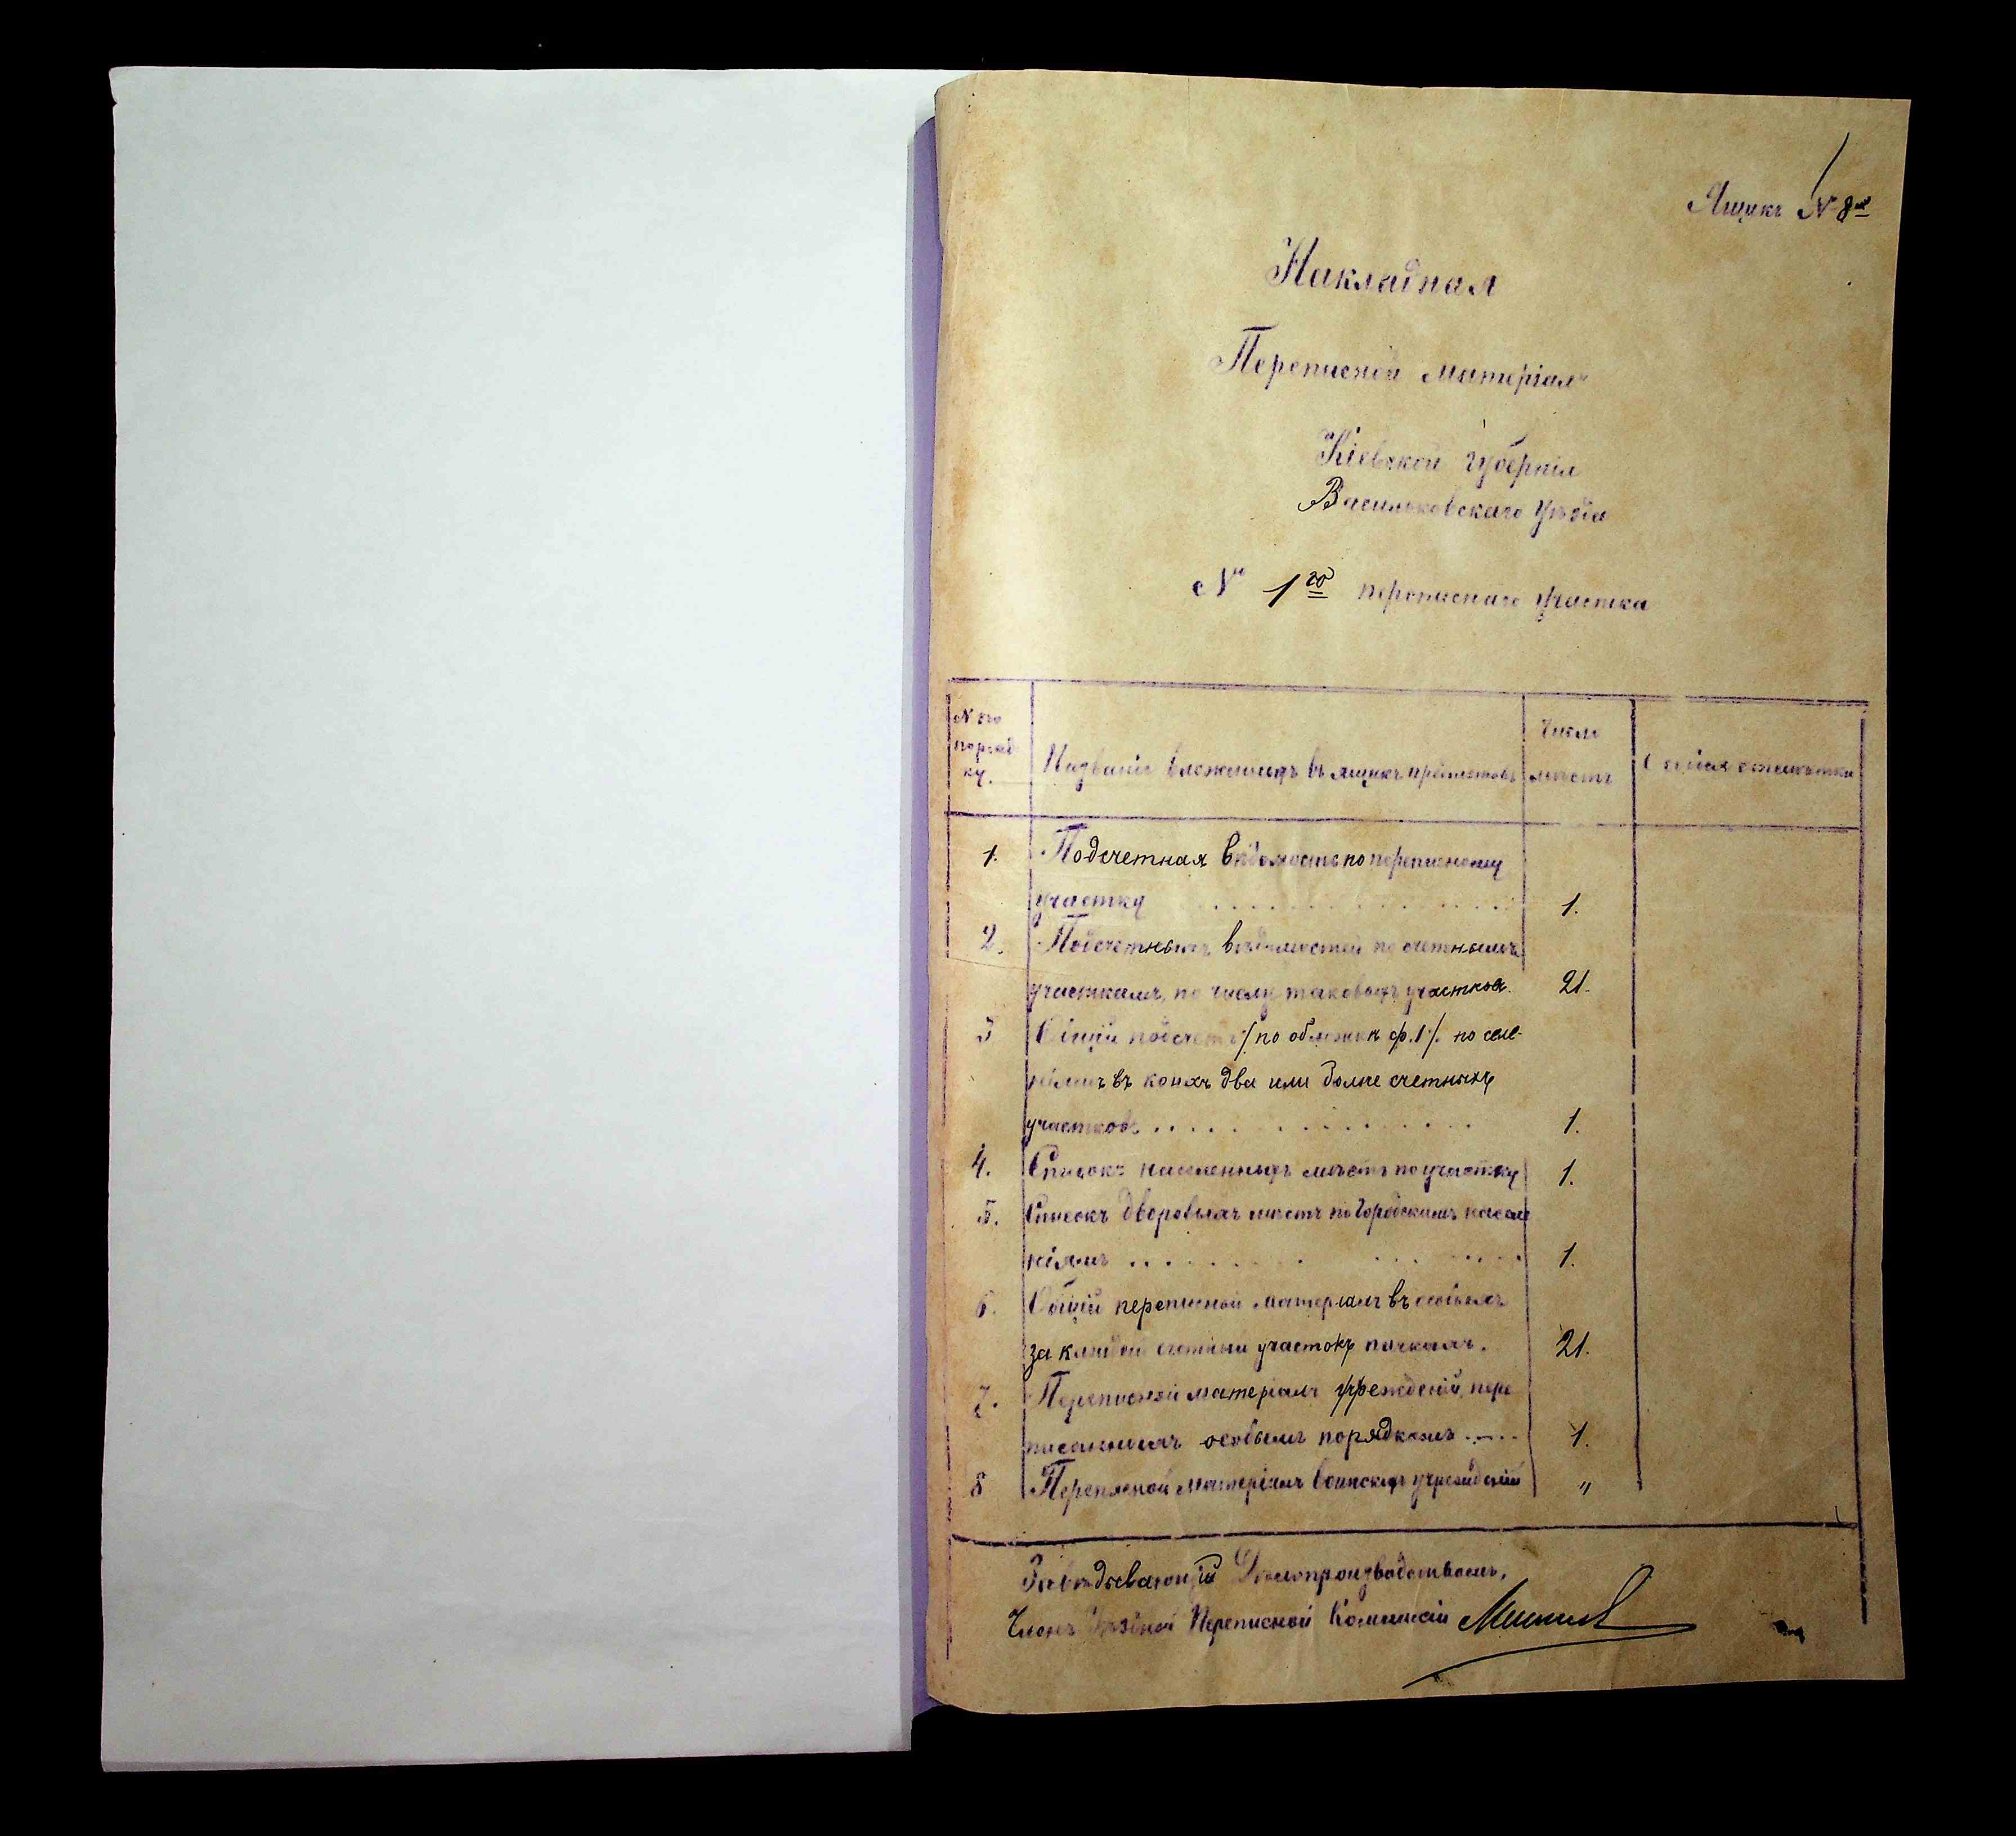 Ящикъ № 8й
Накладная
Переписной матеріалъ
Кіевской губерніи
Васильковскаго уѣзда
№ 1го переписнаго участка
№ по поряд ку.
Названіе вложенныхъ въ ящикъ предметовъ
Число мѣстъ
отмѣтки
1. Подсчетная вѣдомость по переписному
участку . . . . . . . . . . . . . . . 1.
2. Подсчетныхъ вѣдомостей по счетнымъ
участкамъ, по числу таковыхъ участковъ. 21.
3 Общій подсчетъ /по обложкѣ ф. 1/. по селе-
ніямъ въ коихъ два или болѣе счетныхъ
участковъ . . . . . . . . . . . . . . . 1.
4. Списокъ населенныхъ мѣстъ по участку 1.
5. Списокъ дворовыхъ мѣстъ по городскимъ населе
ніямъ . . . . . . . . . . . . . . . 1.
6. Общій переписной матеріалъ въ особыхъ
за каждый счетный участокъ пачкахъ. 21.
7. Переписной матеріалъ учрежденій, пере
писанныхъ особымъ порядкомъ . — . . 1.
8 Переписной матеріалъ воинскихъ учрежденій "
Завѣдывающій Дѣлопроизводствомъ,
Членъ Уѣздной Переписной Коммисіи